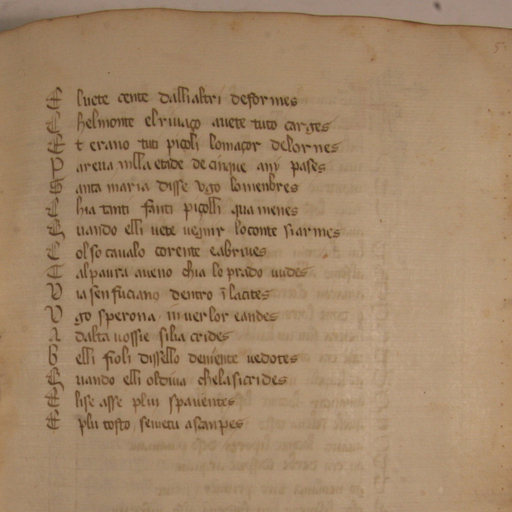 E luete cente dalli altri desformes
C helmonte el riuaço auete tuto carges
E t erano tuti piçoli lomaçor delornes
P areua nilla etade de cinque anj pases
S anta maria disse vgo lomenbres
C hia tanti fanti piçolli qua menes
Q uando elli uete uegnir lo conte si armes
C ol so caualo corente eabriues
T al paura aueno chia lo prado uudes
V ia sen fuciano dentro i lacites
V go sperona inuer lor eandes
A dalta uossie silia crides
B elli fioli dissello deniente uedotes
Q uando elli oldiua chelasicrides
E lise asse plui spauentes
E plu tosto senuetu ascanpes